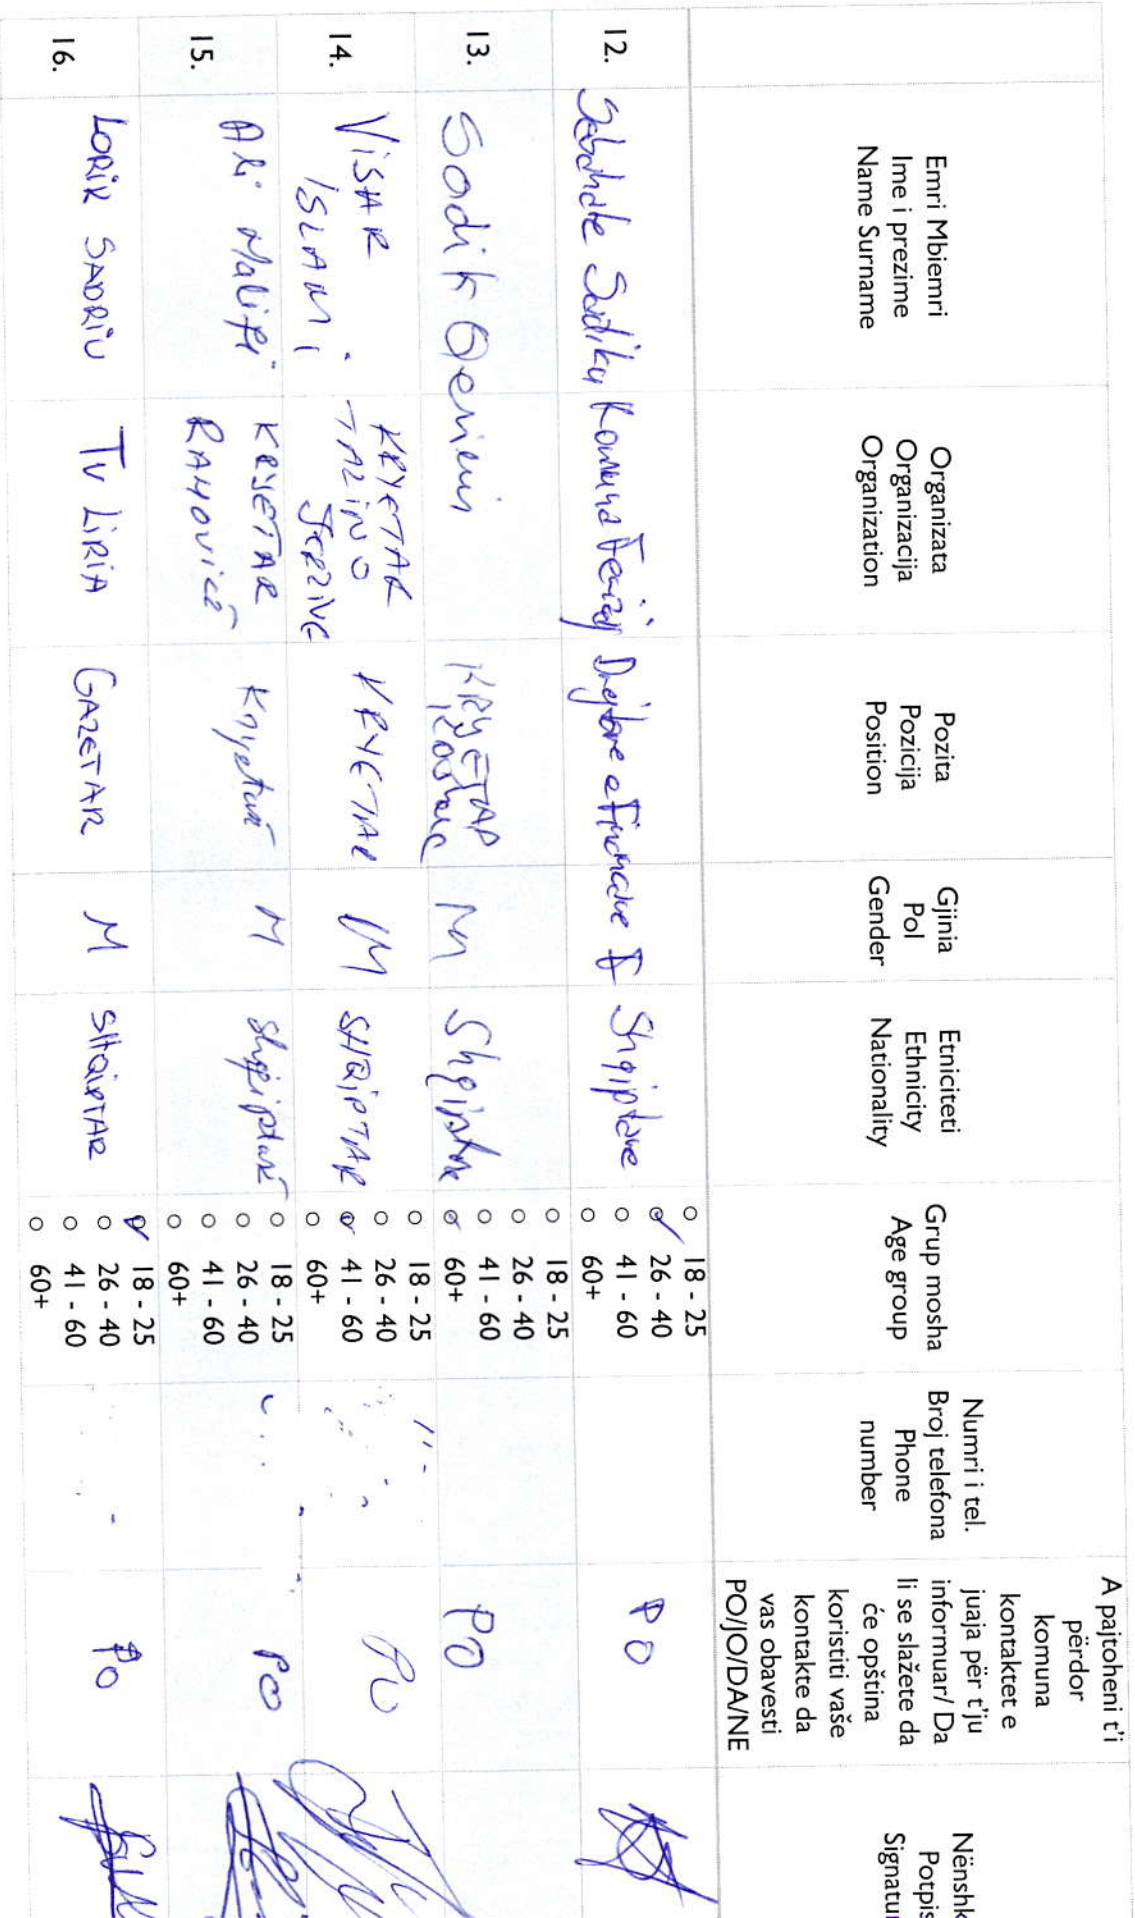 Emri Mbiemri
Ime i prezime
Name Surname
Organizata
Organizacija
Organization
Pozita
Pozicija
Position
Gjinia
Pol
Gender
Etniciteti
Ethnicity
Nationality
Grup mosha
Age group
Numri i tel.
Broj telefona
Phone
number
A pajtoheni t'i
përdor
komuna
kontaktet e
juaja për t'ju
informuar/ Da
li se slažete da
će opština
koristiti vaše
kontakte da
vas obavesti
PO/JO/DA/NE
Nënshk
Potpis
Signatur
12.
Sabahate Sadiku
Komuna Ferizaj
Drejtore e Financave
F
Shqiptare
18 - 25
26 - 40
41 - 60
60+
PO
13.
Sadik
KRYETAR
M
Shqiptar
18 - 25
26 - 40
41 - 60
60+
PO
14.
VISAR
ISLAMI
KRYETAR
KRYETAR
M
SHQIPTAR
18 - 25
26 - 40
41 - 60
60+
PO
15.
Ali
KRYETAR
Kryetar
M
Shqiptar
18 - 25
26 - 40
41 - 60
60+
PO
16.
LORIK SADRIU
TV LIRIA
GAZETAR
M
SHQIPTAR
18 - 25
26 - 40
41 - 60
60+
PO